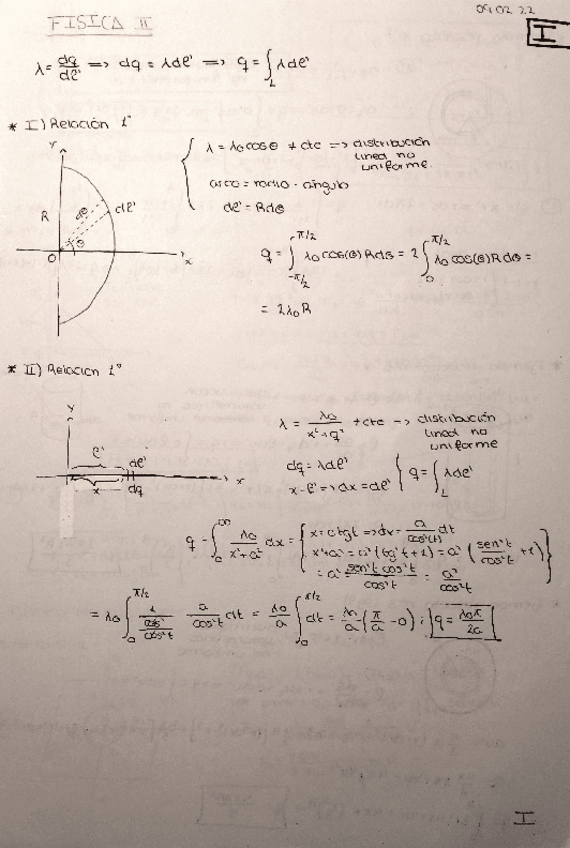 09.02.22
FISICA II
I
λ = dq/dℓ' => dq = λdℓ' => q = ∫_L λdℓ'
* I) Relación 1º
Y
R
dθ
dℓ'
θ
O
X
λ = λ₀cosθ ≠ cte => distribución
lineal no
uniforme.
arco = radio · ángulo
dℓ' = Rdθ
q = ∫_{-π/2}^{π/2} λ₀ cos(θ) R dθ = 2∫_0^{π/2} λ₀ cos(θ) R dθ =
= 2λ₀R
* II) Relación 1º
Y
ℓ'
dℓ'
x
dq
X
λ = λ₀/(x²+a²) ≠ cte -> distribución
lineal no
uniforme
dq = λdℓ'
x = ℓ' => dx = dℓ'
q = ∫_L λdℓ'
q = ∫_0^∞ λ₀/(x²+a²) dx = { x = atgt => dx = a/cos²(t) dt
x²+a² = a²(tg²t + 1) = a² (sen²t/cos²t + 1)
= a² sen²t cos²t/cos²t = a²/cos²t }
= λ₀ ∫_0^{π/2} 1/(a²/cos²t) a/cos²t dt = λ₀/a ∫_0^{π/2} dt = λ₀/a (π/2 - 0) ; q = λ₀π/2a
I